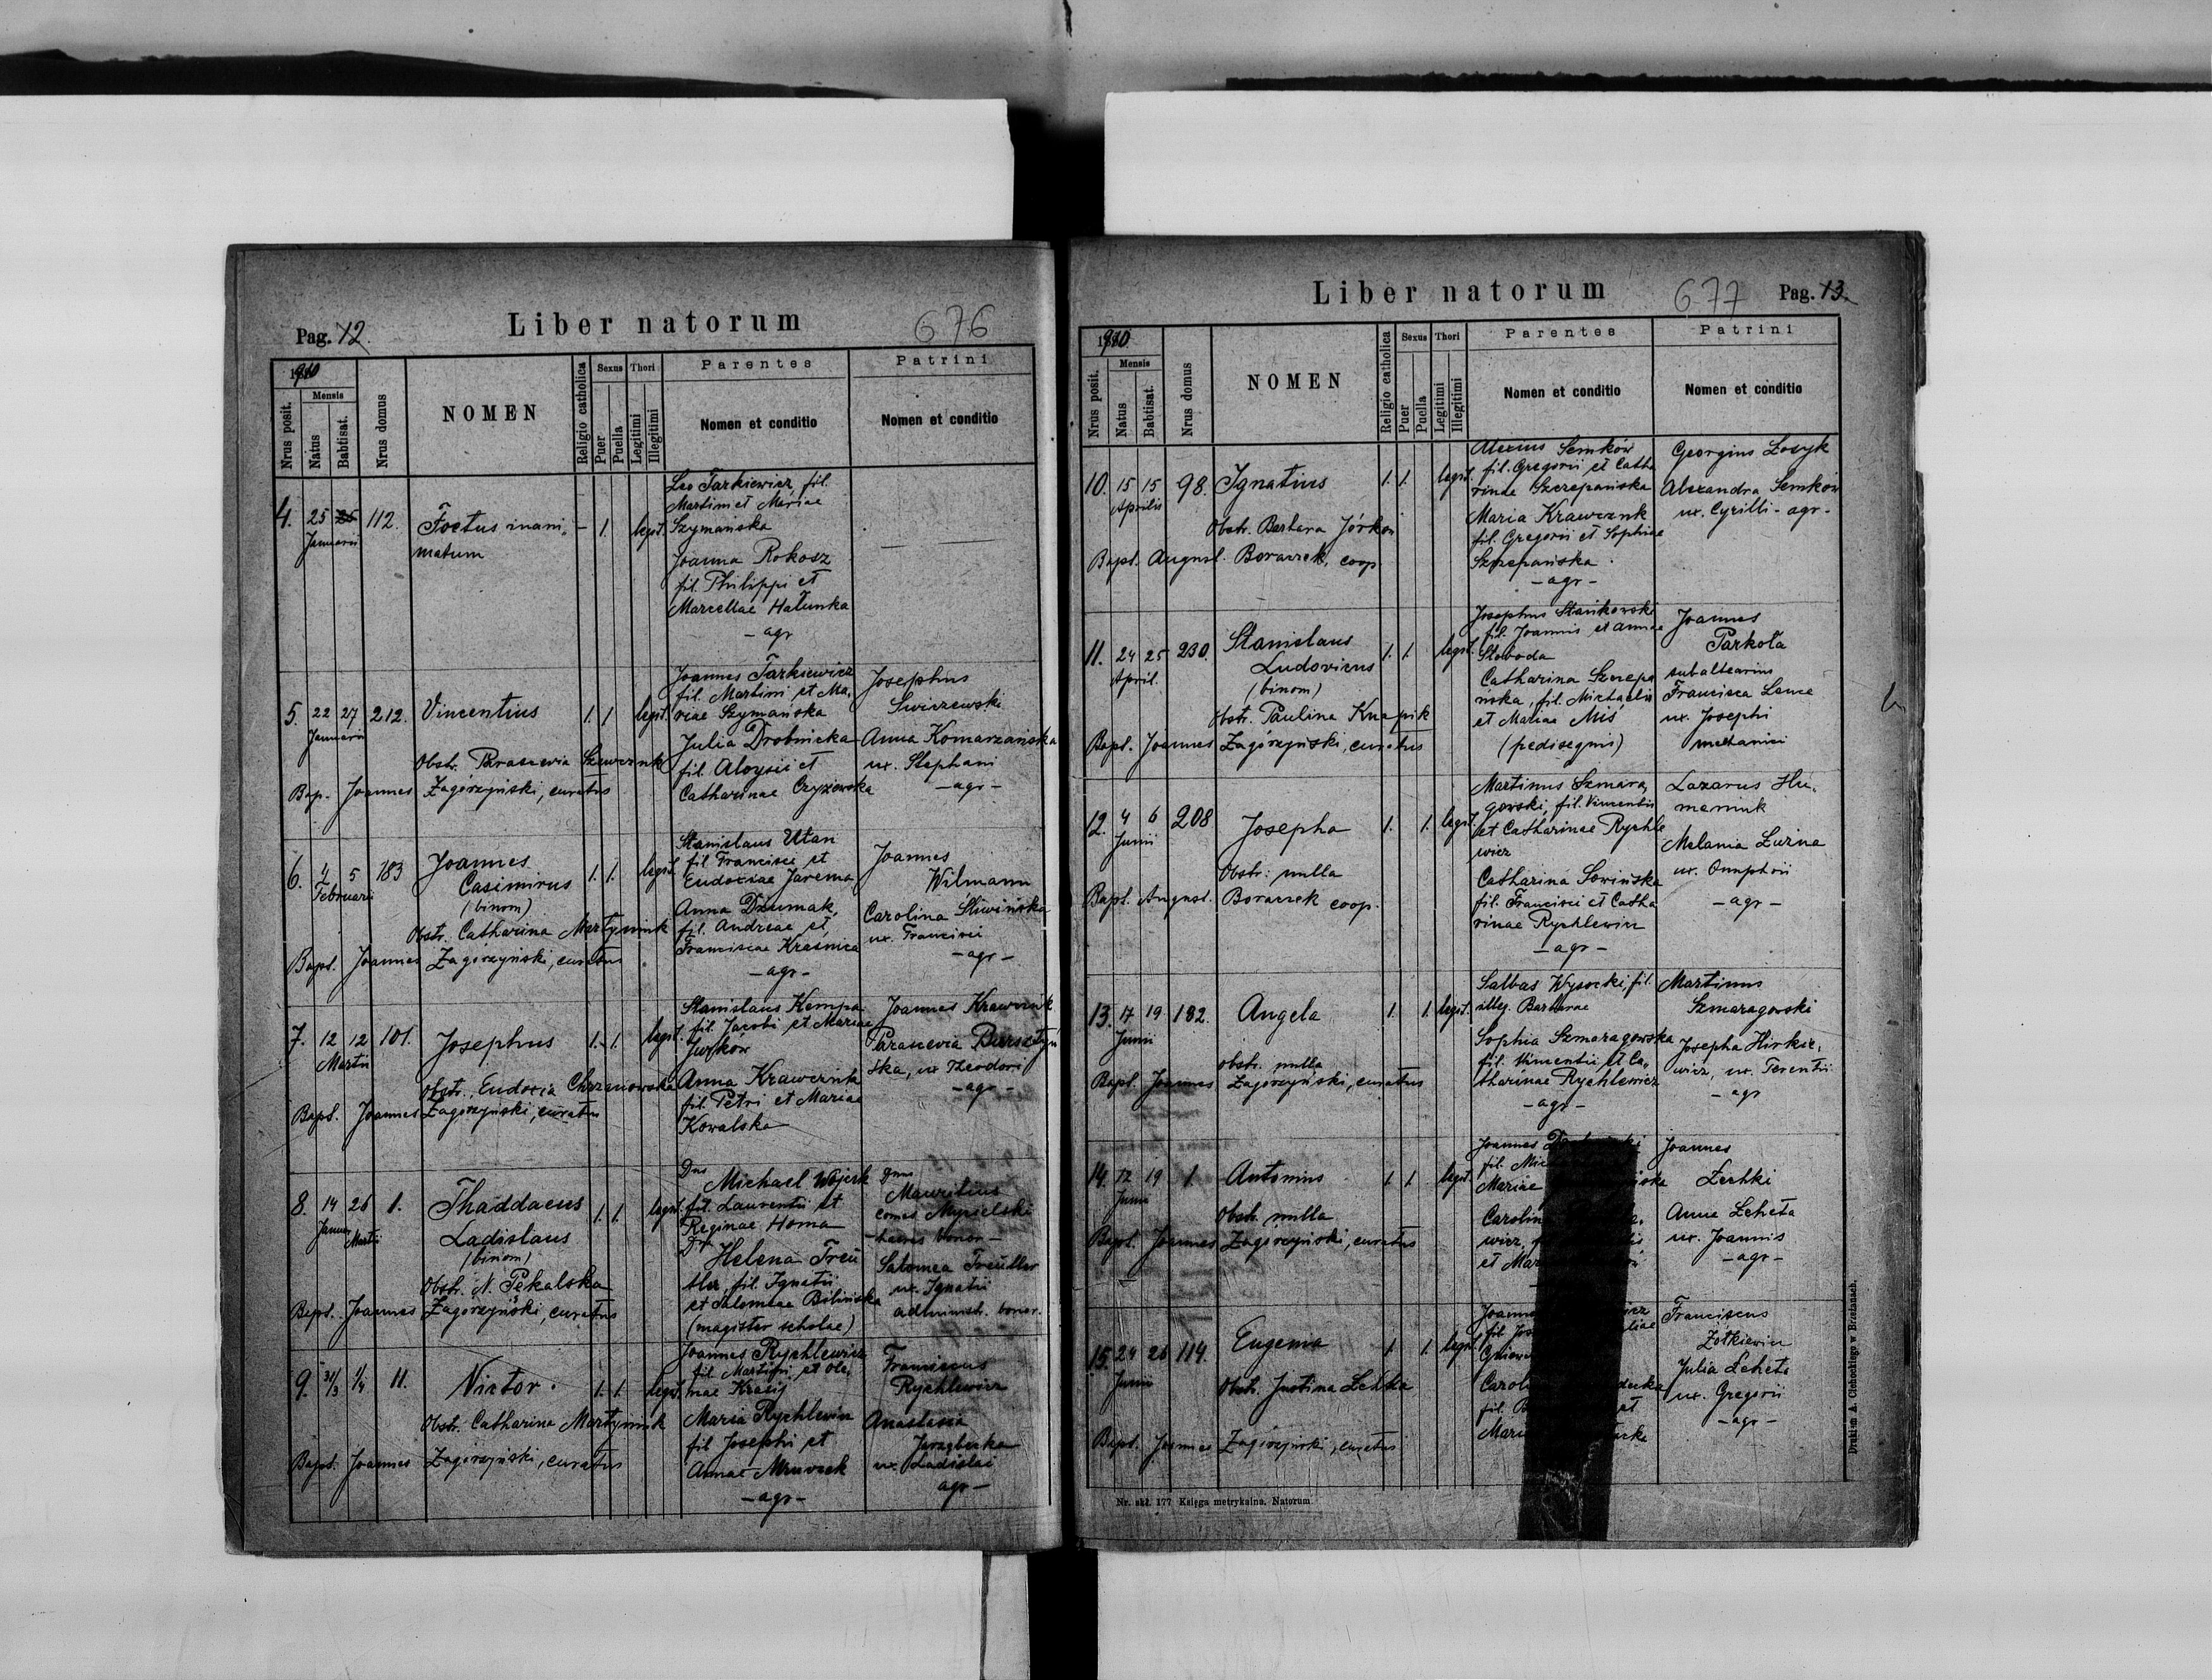 Pag. 12.
Liber natorum
676
1910
Nrus posit.
Mensis
Natus
Babtisat.
Nrus domus
NOMEN
Religio catholica
Sexus
Puer
Puella
Thori
Legitimi
Illegitimi
Parentes
Nomen et conditio
Patrini
Nomen et conditio
4. 25 26 Januarii 112.
Foetus inani„
matum
– 1. legit.
Leo Tarkiewicz, fil.
Martini et Mariae
Szymańska
Joanna Rokosz
fil. Philippi et
Marcellae Hałunka
– agr
5. 22 27 Januarii 212.
Vincentius
1. 1. legit.
Obstr. Parascevia Szewczuk
Bap. Joannes Zagórzyński, curatus
Joannes Tarkiewicz
fil. Martini et Ma„
riae Szymańska
Julia Drobnicka
fil. Aloysii et
Catharinae Czyżowska
Josephus
Anna Komarzańska
ux. Stephani
– agr –
6. 4 5 Februarii 183
Joannes
Casimirus
(binom)
1. 1. legit.
Obstr. Catharina Martyniuk
Bapt. Joannes Zagórzyński, curatus
Stanislaus Utan
fil. Francisci et
Eudoxiae Jarema
Anna Dziumak,
fil. Andreae et
Franciscae Krasnica
– agr –
Joannes
Wilmann
Carolina Śliwińska
ux. Francisci
– agr –
7. 12 12 Martii 101.
Josephus
1. 1. legit.
Obstr. Eudoxia Chrzanowska
Bapt. Joannes Zagórzyński, curatus
Stanislaus Kempa
fil. Jacobi et Mariae
Jurkow
Anna Krawczuk
fil. Petri et Mariae
Kowalska
Joannes Krawczuk
Parascevia Bursztyń
ska, ux Theodori
– agr –
8. 14 Januar 26 Martii 1.
Thaddaeus
Ladislaus
(binom)
1. 1. legit.
Obstr. N. Pękalska
Bapt. Joannes Zagórzyński, curatus
Dnus Michael Wójcik
fil. Laurentii et
Reginae Homa
Helena Treu
tler, fil. Ignatii
et Salomeae Bilińska
(magister scholae)
Dnus
Mauritius
comes Mycielski
haeres bonor –
Salomea Treutler
ux. Ignatii
administr. bonor.
9. 31/3 1/4 11.
Victor.
1. 1. legit.
Obstr. Catharina Martyniuk
Bapt. Joannes Zagórzyński, curatus
Joannes Rychlewicz
fil. Martini et Ole„
nae Krasij
Maria Rychlewicz
fil Josephi et
Annae Mruczek
– agr –
Franciscus
Rychlewicz
Anastasia
ux. Ladislai
agr –
Liber natorum
677
Pag. 13.
1910.
Nrus posit.
Mensis
Natus
Babtisat.
Nrus domus
NOMEN
Religio catholica
Sexus
Puer
Puella
Thori
Legitimi
Illegitimi
Parentes
Nomen et conditio
Patrini
Nomen et conditio
10. 15 15 Aprilis 98.
Ignatius
1. 1. legit.
Obstr. Barbara Jórkow
Bapt. August. Boraczek, coop
Alexius Semków
fil. Gregorii et Catha
rinae Szczepańska
Maria Krawczuk
fil. Gregorii et Sophiae
Szczepańska.
– agr –
Georgius Łosyk
Alexandra Semków
ux. Cyrilli – agr –
11. 24 25 April. 230.
Stanislaus
Ludovicus
(binom)
1. 1. legit.
Obstr. Paulina Knapik
Bapt. Joannes Zagórzyński, curatus
Josephus Stańkowski
fil. Joannis et Annae
Słoboda
Catharina Szczepa
ńska, fil. Michaelis
et Mariae Miś
(pedisequus)
Joannes
Parkoła
Francisca
ux. Josephi
mechanici
12. 4 6 Junii 208
Josepha
1. 1. legit.
Obstr: nulla
Bapt. August. Boraczek coop.
Martinus Szmara„
gowski, fil. Vincentii
et Catharinae Rychle
wicz
Catharina Sowińska
fil. Francisci et Catha
rinae Rychlewicz
– agr –
Lazarus Hu„
meniuk
Melania Luzna
ux. Onuphrii
– agr –
13. 17 19 Junii 182.
Angela
1. 1. legit.
obstr. nulla
Bapt. Joannes Zagórzyński, curatus
Wysocki, fil.
illeg. Barbarae
Sophia Szmaragowska
fil. Vincentii et Ca„
tharinae Rychlewicz
– agr –
Martinus
Szmaragowski
Josepha Hirkie„
wicz, ux. Terentii
– agr
14. 12 19 Junii 1.
Antonius
1. 1. legit.
Obstr. nulla
Bapt. Joannes Zagórzyński, curatus
Joannes
fil. Mic
Mariae
Carolin
wicz,
et Mar
Joannes
Anna Leheta
ux. Joannis
– agr –
15. 24 26 Junii 114.
Eugenia
1. 1. legit.
Obstr. Justina
Bapt. Joannes Zagórzyński, curatus
fil. Jos
Franciscus
Żółkiewicz
Julia Leheta
ux. Gregorii
– agr –
Nr. skł. 177 Księga metrykalna. Natorum.
Drukiem A. Cichockiego w Brzeżanach.